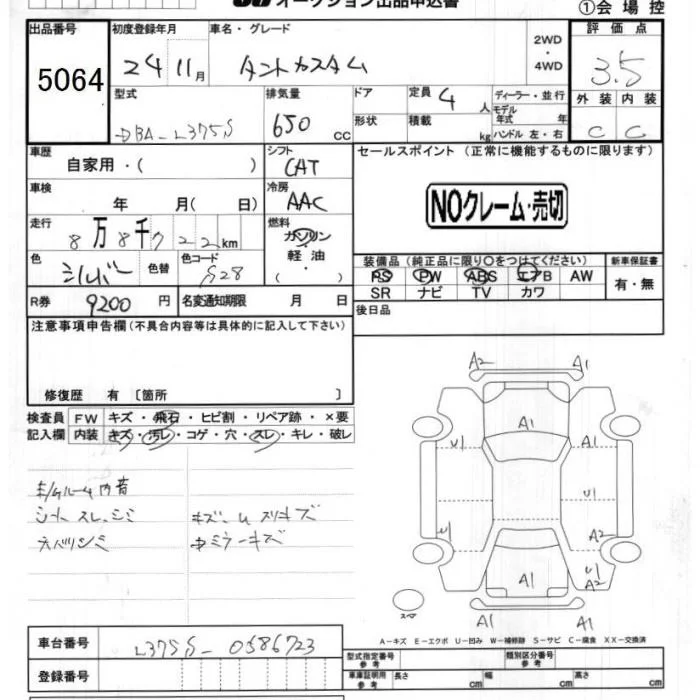 オークション出品申込書
①会場控
出品番号 初度登録年月 車名・グレード 2WD・4WD 評価点
5064 24 11月 タントカスタム 3.5
型式 排気量 ドア 定員 4 人 ディーラー・並行 外装 内装
DBA-L375S 650 cc 形状 積載 kg モデル年式 年 ハンドル 左・右 C C
車歴 シフト セールスポイント (正常に機能するものに限ります)
自家用・( ) CAT
車検 冷房 NOクレーム・売切
年 月( 日) AAC
走行 燃料
8万8千 7 2 2 km ガソリン
色 色替 色コード 軽油 装備品 (純正品に限り○をつけてください) 新車保証書
シルバー S28 ・( ) PS PW ABS エアB AW 有・無
SR ナビ TV カワ
R券 9200 円 名変通知期限 月 日 後日品
注意事項申告欄(不具合内容等は具体的に記入して下さい)
修復歴 有 〔箇所 〕
検査員 FW キズ・飛石・ヒビ割・リペア跡・×要
記入欄 内装 キズ・汚レ・コゲ・穴・スレ・キレ・破レ
シート スレ、シミ
A2 A1
A1
U1 A1
U1
U1 A2
A1 U1 A2
スペア A1 A1
A－キズ E－エクボ U－凹み W－補修跡 S－サビ C－腐食 XX－交換済
車台番号 L375S-0586723
登録番号
型式指定番号 参考 類別区分番号 参考
車庫証明用 参考 長さ cm 幅 cm 高さ cm